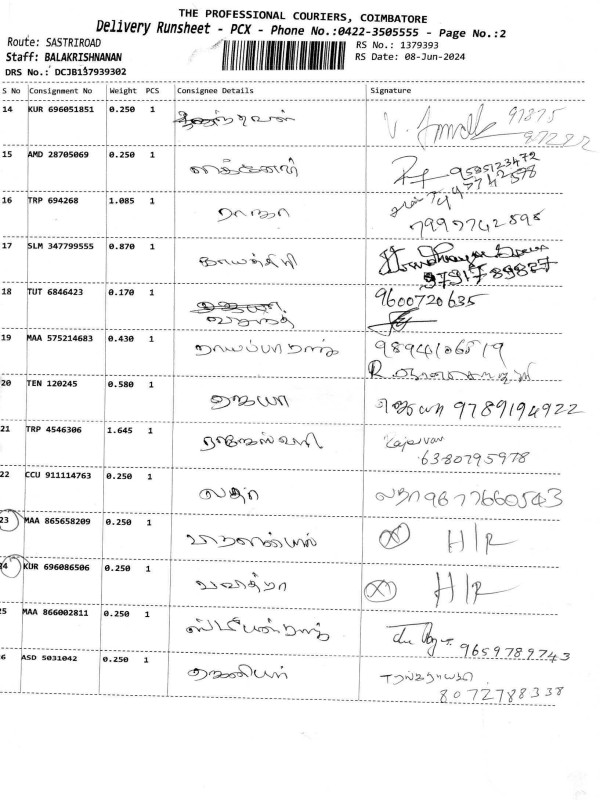 THE PROFESSIONAL COURIERS, COIMBATORE
Delivery Runsheet - PCX - Phone No.:0422-3505555 - Page No.:2
Route: SASTRIROAD
RS No.: 1379393
Staff: BALAKRISHNANAN
RS Date: 08-Jun-2024
DRS No.: DCJB137939302
S No Consignment No Weight PCS Consignee Details Signature
14 KUR 696051851 0.250 1
15 AMD 28705069 0.250 1 9585123472
16 TRP 694268 1.085 1 ராஜா
7999742898
17 SLM 347799555 0.870 1 காயத்திரி
9791789827
18 TUT 6846423 0.170 1 9600720635
வசந்த்
19 MAA 575214683 0.430 1
20 TEN 120245 0.580 1 ஜெயா 9789194922
21 TRP 4546306 1.645 1 ராஜேஸ்வரி
6380795978
22 CCU 911114763 0.250 1 லதா லதா 9677660543
23 MAA 865658209 0.250 1 H/R
24 KUR 696086506 0.250 1 பவித்ரா H/R
25 MAA 866002811 0.250 1 ஸ்டீபன்ராஜ்
9659789743
6 ASD 5031042 0.250 1
8072788338